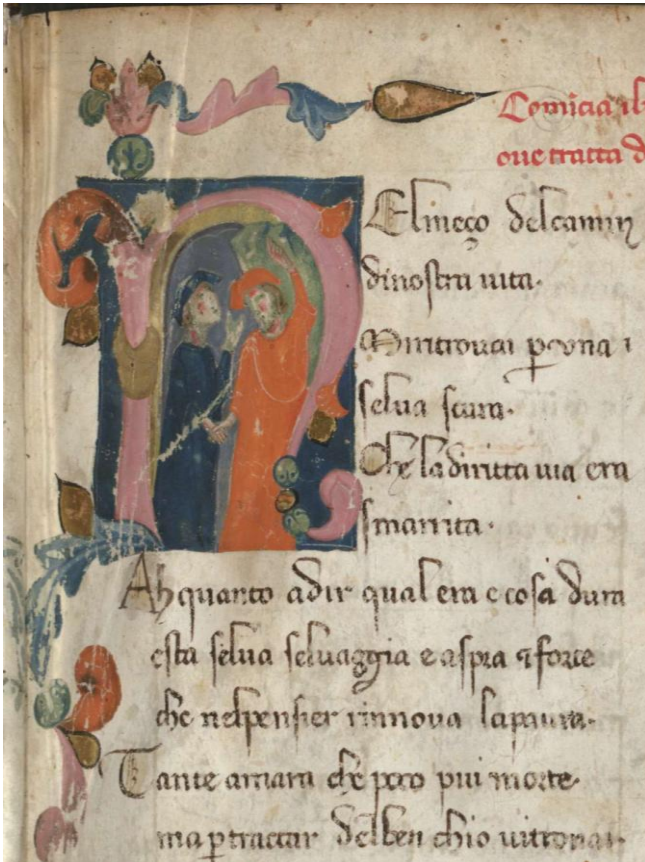 Comicia il
oue tracta d
Elmeço delcamin
dinostra uita.
Mi ritrouai p una i
selua scura.
Che la diritta uia era
smarrita.
Ah quanto adir qual era e cosa dura
esta selua seluaggia e aspra & forte
che nelpensier rinnoua lapaura.
Tante amara che poco piu morte.
ma p tractar delben chio ui trouai.